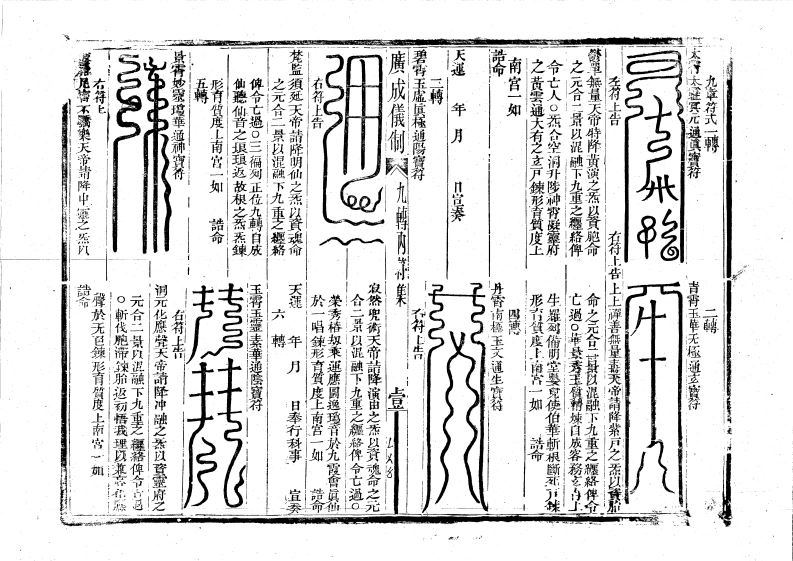 九章符式一轉
右符上告
鬱單無量天帝特降黃演之炁以資胞命
之元合二景以混融下九重之纏絡俾
令亡人○炁合空洞升陟神霄凝靈府
之黃雲通大有之玄戶鍊形育質度上
南宮一如
誥命
天運 年 月 日宣奏
三轉
碧霄玉虛眞極通陽寶符
二轉
青霄玉華无極通玄寶符
右符上告
上上禪善無量壽天帝請降紫戶之炁以資胎
命之元合二景以混融下九重之纏絡俾令
亡過○華景秀玉質精煉自成容務玄
牛羅列備明堂嬰兒使伯華斬根斷死戶鍊
形育質度上南宮一如 誥命
四轉
丹霄南極玉文通生寶符
右符上告
廣成儀制 九轉內符集 壹
右符上告
梵監須延天帝請降明仙之炁以資魂命
之元合二景以混融下九重之纏絡
俾令亡過○三偏列正位九轉自成
仙聽仙音之琅琅返故根之炁炁鍊
形育質度上南宮一如 誥命
五轉
景霄妙炁瓊華通神寶符
右符上
不驕樂天帝請降中靈之炁以
寂然兜術天帝請降演由之炁以資魂命之元
合二景以混融下九重之纏絡俾令亡過○
榮秀椿劫乘運應圖逸瑤音於九霞會眞仙
於一唱鍊形育質度上南宮一如 誥命
天運 年 月 日奉行科事 宣奏
六轉
玉霄玉靈素華通陰寶符
右符上告
洞元化應聲天帝請降冲融之炁以資靈府之
元合二景以混融下九重之纏絡俾令亡過
○斬伐胞滯鍊胎返初悟我理以兼忘
聲於无色鍊形育質度上南宮一如
誥命